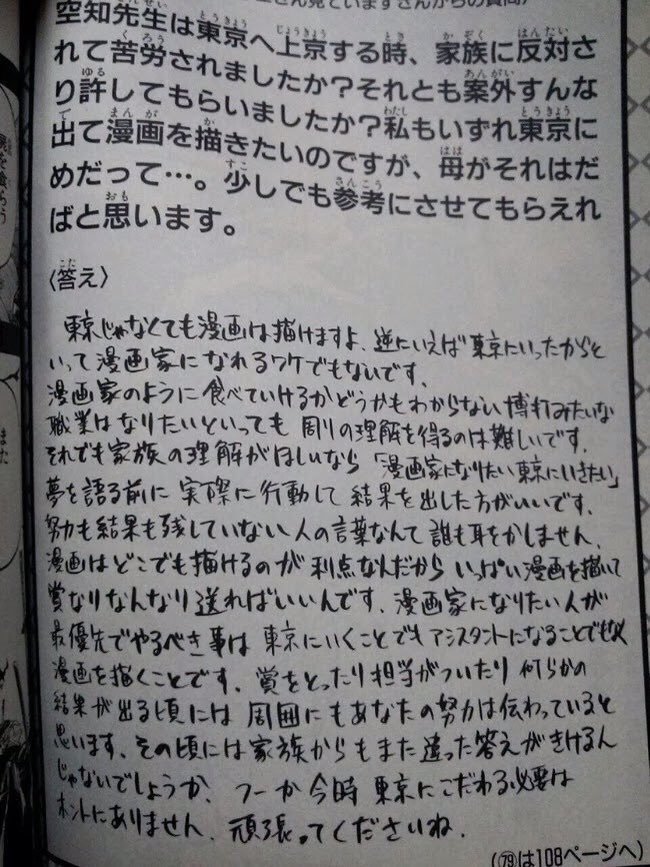 生さん見ていますさんからの質問〉
空知先生は東京へ上京する時、家族に反対さ
れて苦労されましたか？それとも案外すんな
り許してもらいましたか？私もいずれ東京に
出て漫画を描きたいのですが、母がそれはだ
めだって…。少しでも参考にさせてもらえれ
ばと思います。
〈答え〉
東京じゃなくても漫画は描けますよ、逆にいえば東京にいったからと
いって漫画家になれるワケでもないです。
漫画家のように食べていけるかどうかもわからない博打みたいな
職業はなりたいといっても周りの理解を得るのは難しいです。
それでも家族の理解がほしいなら「漫画家になりたい東京にいきたい」
夢を語る前に実際に行動して結果を出した方がいいです。
努力も結果も残していない人の言葉なんて誰も耳をかしません。
漫画はどこでも描けるのが利点なんだからいっぱい漫画を描いて
賞なりなんなり送ればいいんです。漫画家になりたい人が
最優先でやるべき事は東京にいくことでもアシスタントになることでもなく
漫画を描くことです。賞をとったり担当がついたり何らかの
結果が出る頃には周囲にもあなたの努力は伝わっていると
思います。その頃には家族からもまた違った答えがきけるん
じゃないでしょうか。つーか今時東京にこだわる必要は
ホントにありません。頑張ってくださいね。
(79は108ページへ)